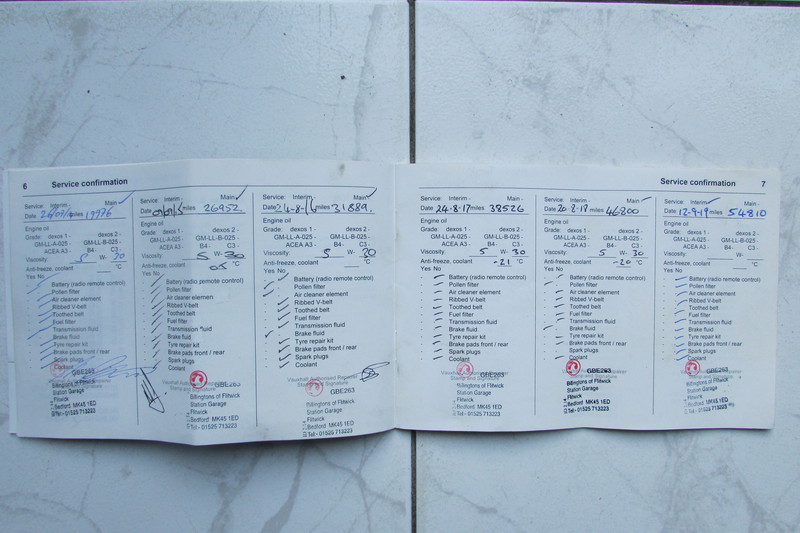 6 Service confirmation
Service: Interim - Main -
Date miles 13976
Engine oil
Grade: dexos 1 - dexos 2 -
GM-LL-A-025 - GM-LL-B-025 -
ACEA A3 - B4 - C3 -
Viscosity: 5 W- 30
Anti-freeze, coolant °C
Yes No
Battery (radio remote control)
Pollen filter
Air cleaner element
Ribbed V-belt
Toothed belt
Fuel filter
Transmission fluid
Brake fluid
Tyre repair kit
Brake pads front / rear
Spark plugs
Coolant
GBE263
Billingtons of Flitwick
Station Garage
Flitwick
Bedford MK45 1ED
Tel - 01525 713223
Service: Interim - Main -
Date miles 26952
Engine oil
Grade: dexos 1 - dexos 2 -
GM-LL-A-025 - GM-LL-B-025 -
ACEA A3 - B4 - C3 -
Viscosity: 5 W- 30
Anti-freeze, coolant °C
Yes No
Battery (radio remote control)
Pollen filter
Air cleaner element
Ribbed V-belt
Toothed belt
Fuel filter
Transmission fluid
Brake fluid
Tyre repair kit
Brake pads front / rear
Spark plugs
Coolant
GBE263
Billingtons of Flitwick
Station Garage
Flitwick
Bedford MK45 1ED
Tel - 01525 713223
Service: Interim - Main -
Date miles 31889.
Engine oil
Grade: dexos 1 - dexos 2 -
GM-LL-A-025 - GM-LL-B-025 -
ACEA A3 - B4 - C3 -
Viscosity: 5 W- 30
Anti-freeze, coolant °C
Yes No
Battery (radio remote control)
Pollen filter
Air cleaner element
Ribbed V-belt
Toothed belt
Fuel filter
Transmission fluid
Brake fluid
Tyre repair kit
Brake pads front / rear
Spark plugs
Coolant
GBE263
Billingtons of Flitwick
Station Garage
Flitwick
Bedford MK45 1ED
Tel - 01525 713223
Service confirmation 7
Service: Interim - Main -
Date 24-8-17 miles 38526
Engine oil
Grade: dexos 1 - dexos 2 -
GM-LL-A-025 - GM-LL-B-025 -
ACEA A3 - B4 - C3 -
Viscosity: 5 W- 30
Anti-freeze, coolant -21 °C
Yes No
Battery (radio remote control)
Pollen filter
Air cleaner element
Ribbed V-belt
Toothed belt
Fuel filter
Transmission fluid
Brake fluid
Tyre repair kit
Brake pads front / rear
Spark plugs
Coolant
GBE263
Billingtons of Flitwick
Station Garage
Flitwick
Bedford MK45 1ED
Tel - 01525 713223
Service: Interim - Main -
Date miles 46800
Engine oil
Grade: dexos 1 - dexos 2 -
GM-LL-A-025 - GM-LL-B-025 -
ACEA A3 - B4 - C3 -
Viscosity: 5 W- 30
Anti-freeze, coolant -20 °C
Yes No
Battery (radio remote control)
Pollen filter
Air cleaner element
Ribbed V-belt
Toothed belt
Fuel filter
Transmission fluid
Brake fluid
Tyre repair kit
Brake pads front / rear
Spark plugs
Coolant
GBE263
Billingtons of Flitwick
Station Garage
Flitwick
Bedford MK45 1ED
Tel - 01525 713223
Service: Interim - Main -
Date 12-9-19 miles 54810
Engine oil
Grade: dexos 1 - dexos 2 -
GM-LL-A-025 - GM-LL-B-025 -
ACEA A3 - B4 - C3 -
Viscosity: 5 W- 30
Anti-freeze, coolant °C
Yes No
Battery (radio remote control)
Pollen filter
Air cleaner element
Ribbed V-belt
Toothed belt
Fuel filter
Transmission fluid
Brake fluid
Tyre repair kit
Brake pads front / rear
Spark plugs
Coolant
GBE263
Billingtons of Flitwick
Station Garage
Flitwick
Bedford MK45 1ED
Tel - 01525 713223